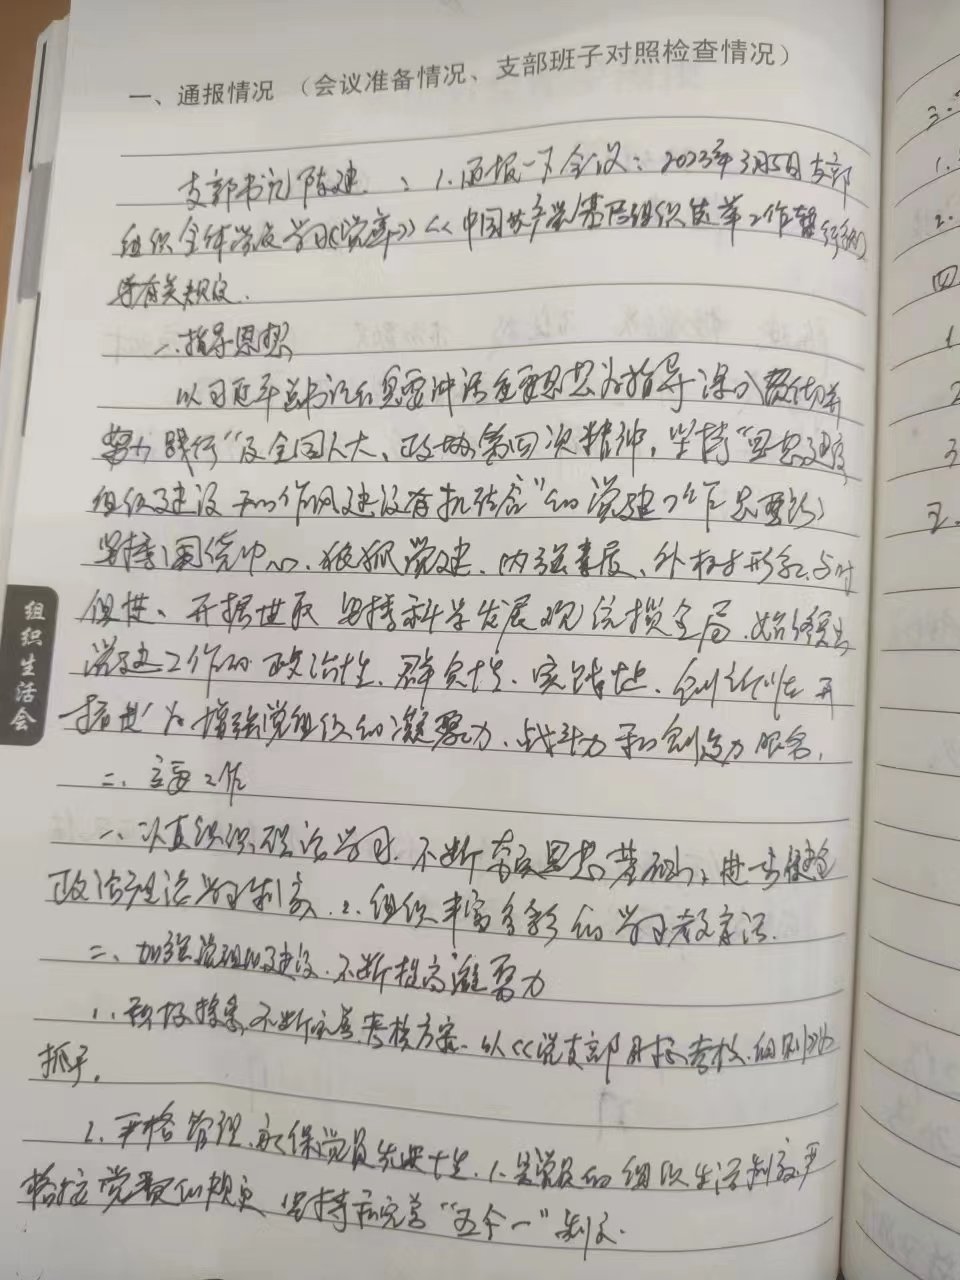 一、通报情况 （会议准备情况、支部班子对照检查情况）
支部书记陈建：1.通报一下会议：2023年3月5日支部
组织全体党员学习《党章》《中国共产党基层组织选举工作暂行条例》
等有关规定.
一、指导思想
以习近平总书记重要讲话重要思想为指导深入贯彻并
努力践行"及全国人大、政协第四次精神，坚持"思想建设
组织建设和作风建设有机结合"的党建工作总要求，
坚持围绕中心、狠抓党建、内强素质、外树形象、与时
俱进、开拓进取 坚持科学发展观统揽全局，始终突出
党建工作的政治性、群众性、实践性、创新性 开
拓进 为增强党组织的凝聚力、战斗力和创造力服务，
二、主要工作
一、认真组织政治学习，不断夯实思想基础，进一步健全
政治理论学习制度.2.组织丰富多彩的学习教育活.
二、加强党组织建设，不断提高凝聚力
1.积极探索，不断完善考核方案.以《党支部目标考核细则》为
抓手.
2.严格管理，永保党员先进性，1.是党员的组织生活制度严
格按党章的规定 坚持和完善"五个一"制度.
组织生活会